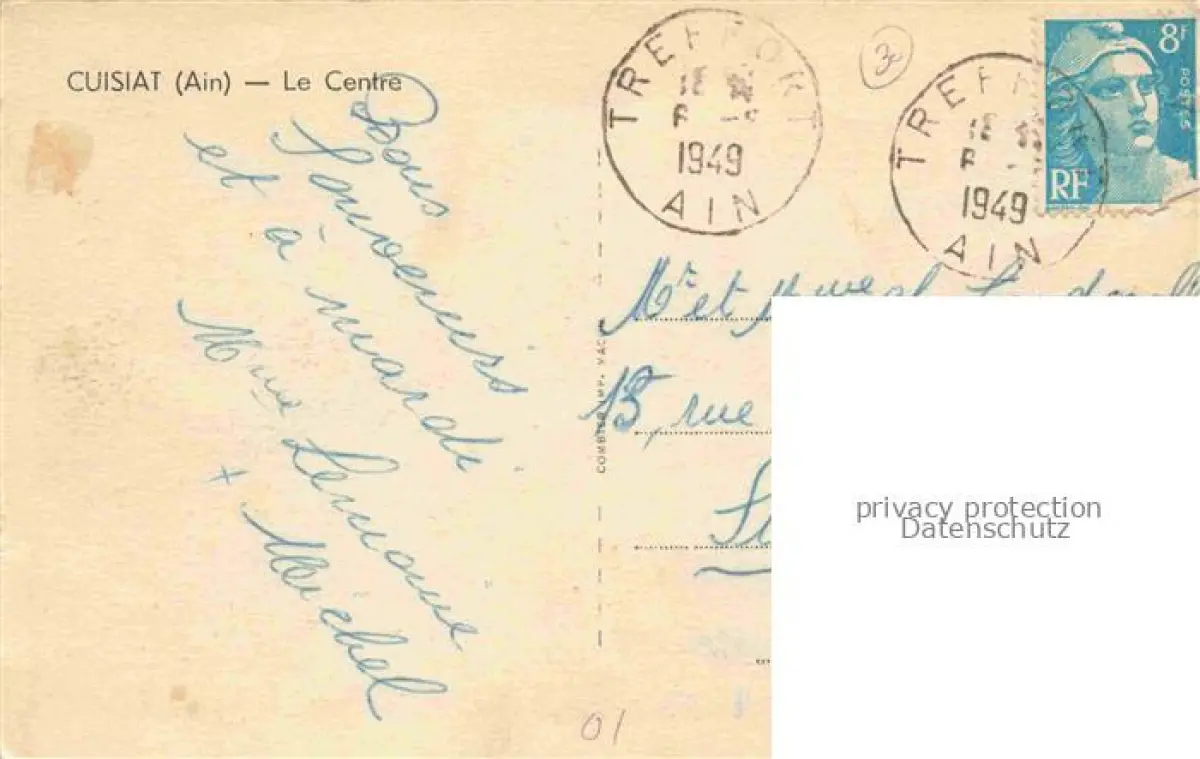 CUISIAT (Ain) — Le Centre
Bons
Souvenirs
et à mardi
Mme Lemoine
+ Michel
TREFFORT
18
6 -
1949
AIN
30
TREFFORT
18
6 -
1949
AIN
8F
POSTES
RF
Mr et Mme
15, rue
COMBIER IMP. MACON
privacy protection
Datenschutz
01